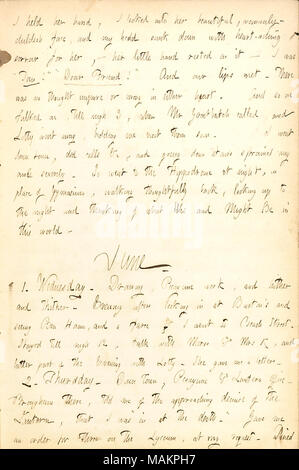 I held her hand, I looked into her beautiful, womanly-
child's face, and my head sunk down with heart-aching
sorrow for her, — her little hand rested on it — I was
"Dear Friend!" And our lips met. There
was no thought impure or wrong in either heart. And so we
talked on till nigh 5, when Mr called and
Lotty went away, bidding me visit them soon. I went
down town, did calls &c, and going down stairs sprained my
ancle severely. So went to the Hippodrome at night, in
place of Gymnasium, walking thoughtfully back, looking up to
the night and thinking of what Was and Might Be in
this world.
June
1. Wednesday. Drawing, Picayune work, and hither
and thither. Evening after looking in at Banton's and
seeing Dan, and a I went to Street.
Stayed till nigh 10, talk with Mr and
latter part of the Evening with Lotty. She gave me a letter.
2. Thursday. Down town, Picayune & Lantern Office.
Brougham there, told me of the approaching demise of the
Lantern, that I was in at the death. Gave me
an order for three on the Lyceum, at my request. Dined
alamy
Image ID: MAKPH7
www.alamy.com